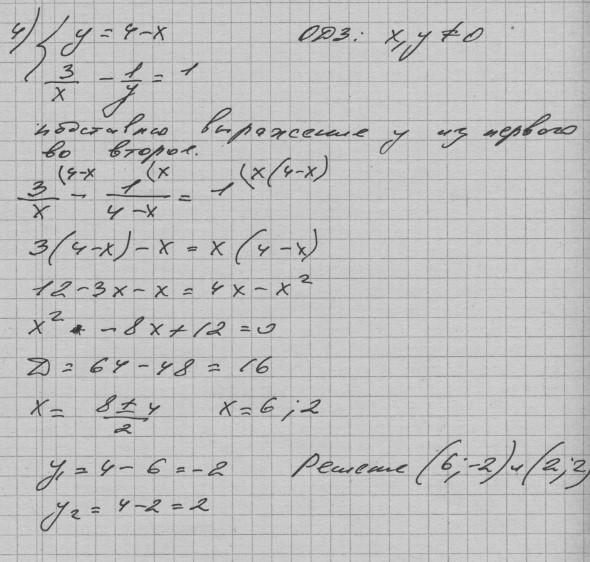 4) { y = 4-x    ОДЗ: x, y ≠ 0
3/x - 1/y = 1
подставлю выражение y из первого
во второе.
3/x (4-x - 1/(4-x) (x = 1 (x(4-x)
3(4-x) - x = x(4-x)
12-3x-x = 4x-x²
x² - 8x+12 = 0
D = 64-48 = 16
x = (8±4)/2    x = 6; 2
y₁ = 4-6 = -2    Решение (6;-2) и (2;2)
y₂ = 4-2 = 2